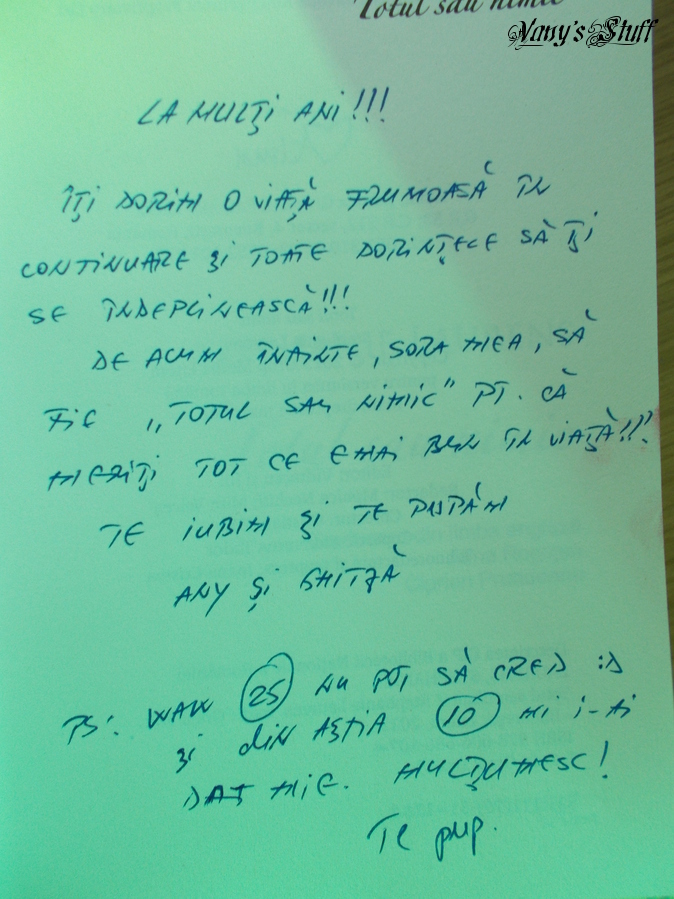 Totul sau nimic
Vany's Stuff
LA MULȚI ANI!!!
ÎȚI DORIM O VIAȚĂ FRUMOASĂ ÎN
CONTINUARE ȘI TOATE DORINȚELE SĂ ȚI
SE ÎNDEPLINEASCĂ!!!
DE ACUM ÎNAINTE, SORA MEA, SĂ
FIE „TOTUL SAU NIMIC" PT. CĂ
MERIȚI TOT CE E MAI BUN ÎN VIAȚĂ!!!
TE IUBIM ȘI TE PUPĂM
ANY ȘI GHITZĂ
PS: WAW 25 NU POT SĂ CRED :D
ȘI DIN ĂȘTIA 10 MI I-AI
DAT MIE. MULȚUMESC!
Te pup.